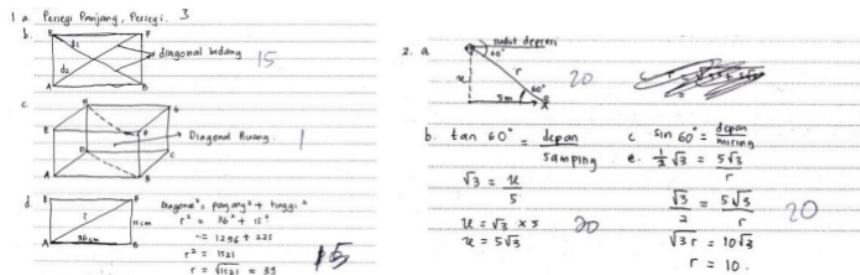 1 a. Persegi Panjang, Persegi. 3
b.
E F
d1
d2
A B
diagonal bidang 15
c.
H G
E F
D C
A B
Diagonal Ruang. 1
d.
E F
?
15 cm
A B
36 cm
Diagonal² = panjang² + tinggi²
r² = 36² + 15²
= 1296 + 225
r² = 1521
r = √1521 = 39
15
2. a
sudut depresi
60°
x
r
60°
5m
20
b. tan 60° = depan / samping
√3 = x / 5
x = √3 × 5
x = 5√3
20
c sin 60° = depan / miring
e. ½√3 = 5√3 / r
√3 / 2 = 5√3 / r
20
√3 r = 10√3
r = 10.